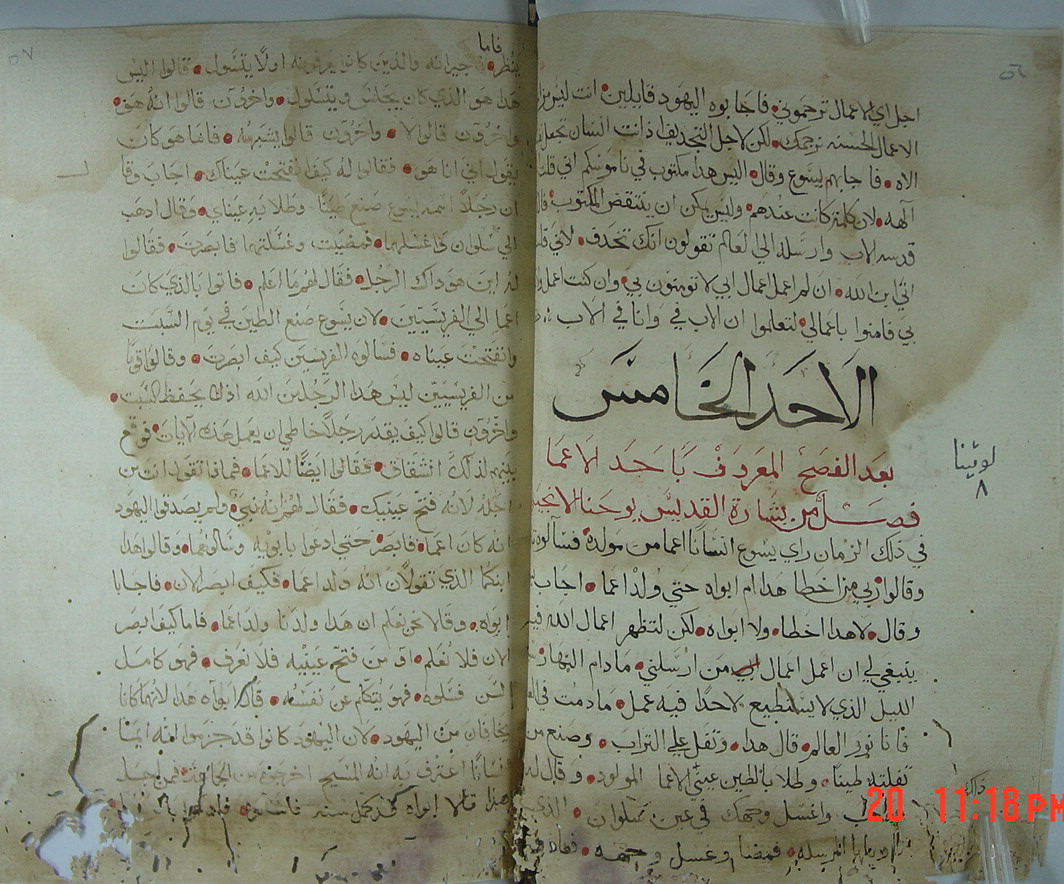 ٥٦
اجل اي الاعمال ترجموني فاجابوه اليهود قايلين انت ليس من
الاعمال الحسنه نرجمك لكن لاجل التجديف اذ انت انسان تجعل
الاه فاجابهم يسوع وقال اليس هذا مكتوب في ناموسكم اني قلت
الهه لان كلمة كانت عندهم وليس يمكن ان ينتقض المكتوب
قدسه الاب وارسله الي العالم تقولون انك تجدف لاني قلت
اني ابن الله ان لم اعمل اعمال ابي لا تومنون بي وان كنت اعمل
بي فامنوا باعمالي لتعلموا ان الاب في وانا في الاب
الاحد الخامس
بعد الفصح المعروف باحد الاعما
فصل من بشارة القديس يوحنا الانجيلي
في ذلك الزمان راي يسوع انسانا اعما من مولده فسالوه
وقالوا ربي من اخطا هذا ام ابواه حتي ولد اعما اجاب
وقال لا هذا اخطا ولا ابواه لكن لتظهر اعمال الله فيه
ينبغي لي ان اعمل اعمال من ارسلني مادام النهار
الليل الذي لا يستطيع لاحدا فيه عمل مادمت في
فانا نور العالم قال هذا وتفل علي التراب وصنع من
تفلته طينا وطلا بالطين عيني الاعما المولود وقال له
واغسل وجهك في عين سلوان الذي
فمضا وغسل وجهه
لوقينا
٨
٥٧
فاما
جيرانه والذين كانوا يعرفونه اولا يتسول قالوا اليس
هذا هو الذي كان يجلس ويتسول واخرون قالوا انه هو
واخرون قالوا لا واخرون قالوا يشبهه فاما هو كان
يقول اني انا هو فقالوا له كيف انفتحت عيناك اجاب وقال
ان رجلا اسمه يسوع صنع طينا وطلا به عيناي وقال اذهب
الي سلوان واغسلهما فمضيت وغسلتهما فابصرت فقالوا
له اين هو ذاك الرجل فقال لهم ما اعلم فاتوا بالذي كان
اعما الي الفريسيين لان يسوع صنع الطين في يوم السبت
وانفتحت عيناه فسالوه الفريسين كيف ابصرت وقالوا قوما
من الفريسيين ليس هذا الرجل من الله اذ لا يحفظ السبت
واخرون قالوا كيف يقدر رجلا خاطي ان يعمل هذه الايات فوقع
بينهم لذلك انشقاق فقالوا ايضا للاعما فماذا تقول انت من
اجله لانه فتح عينيك فقال لهم انه نبي ولم يصدقوا اليهود
انه كان اعما فابصر حتي ادعوا بابويه وسالوهما وقالوا هذا
ابنكما الذي تقولان انه ولد اعما فكيف ابصر الان فاجابا
ابواه وقالا نحن نعلم ان هذا ولدنا ولد اعما فاما كيف ابصر
الان فلا نعلم او من فتح عينيه فلا نعرف فهو كامل
السن فسلوه فهو يتكلم عن نفسه قالا ابواه هذا لانهما كانا
يخافان من اليهود لان اليهود كانوا قد جزموا انه ايما
انسانا اعترف به انه المسيح اخرجوه من الجماعة فمن اجل
هذا قالا ابواه كمل سنه فاسلوه
20 11:18 PM